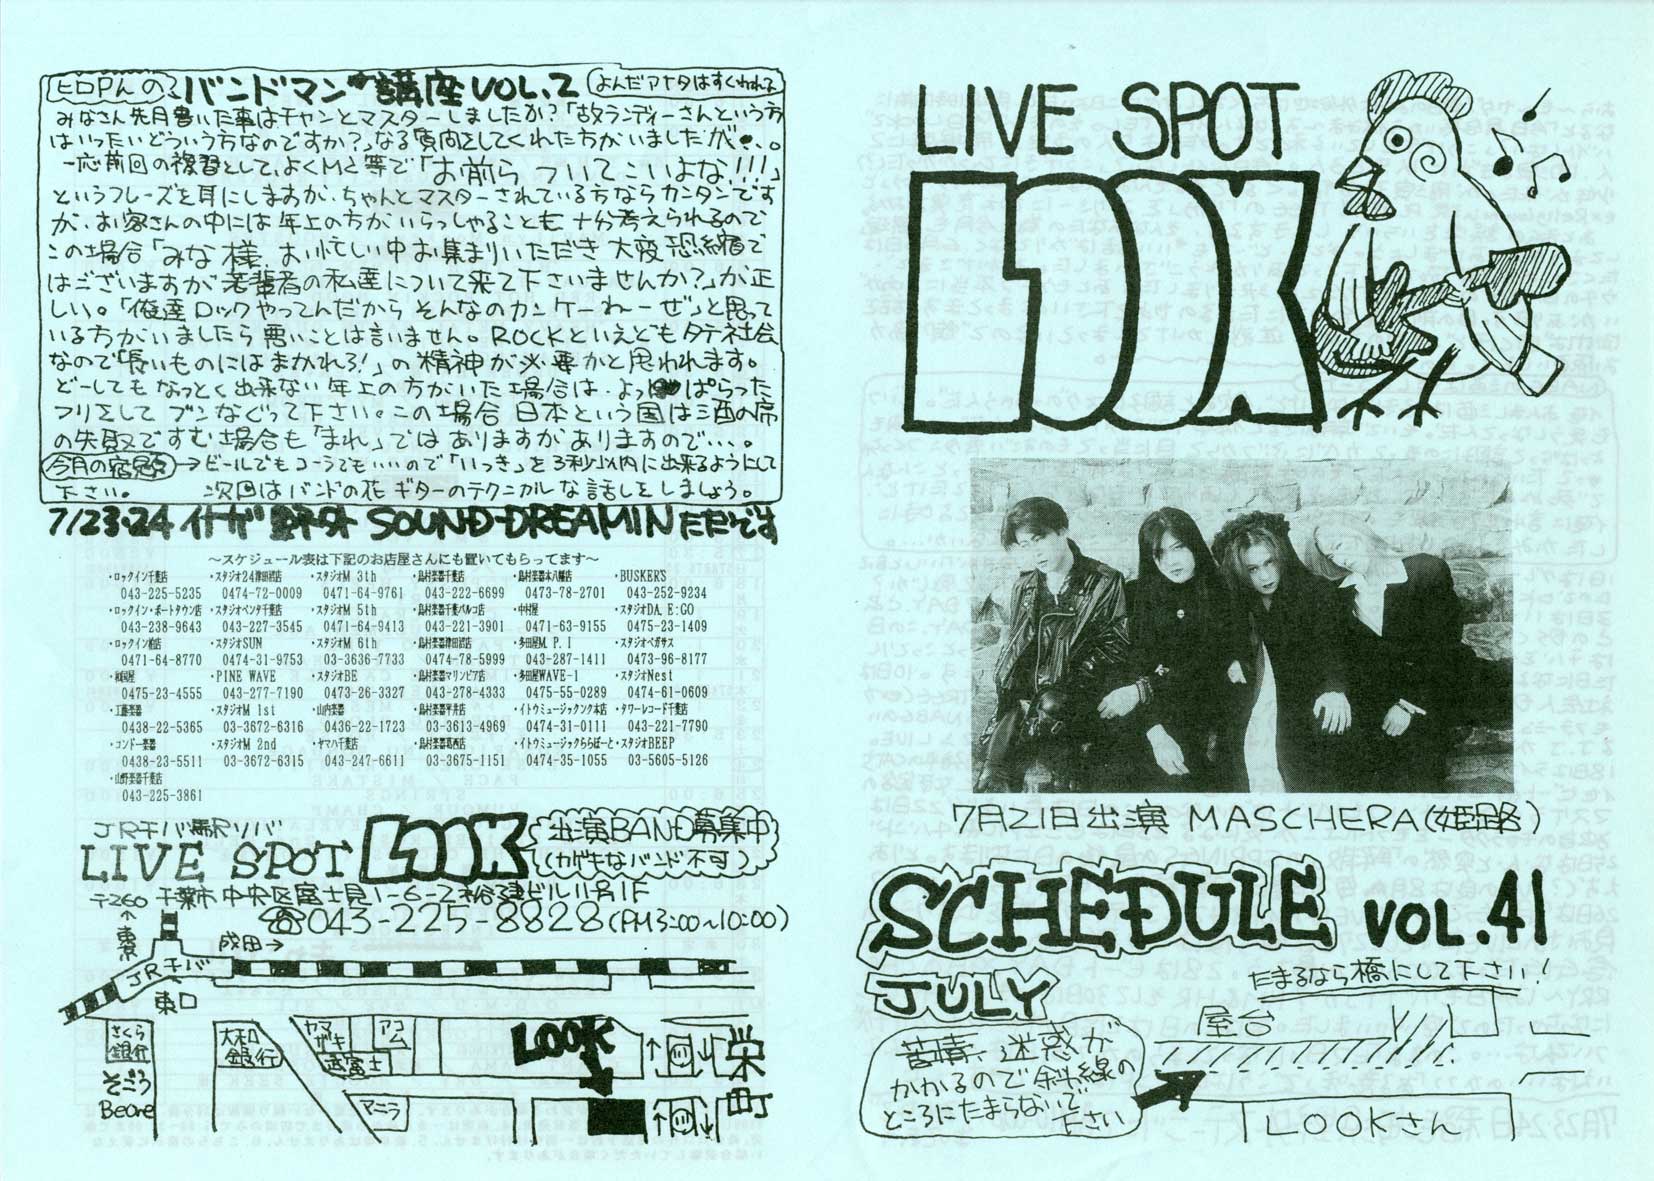 ヒロPんの バンドマン講座 VOL.2 よんだアナタはすくわれる
みなさん先月書いた事はチャンとマスターしましたか?「故ランディーさんという方
はいったいどういう方なのですか?」なる質問をしてくれた方がいましたが・・。
一応前回の復習として、よくMC等で「お前ら ついてこいよな!!!」
というフレーズを耳にしますが、ちゃんとマスターされている方ならカンタンです
が、お客さんの中には年上の方がいらっしゃることも十分考えられるので
この場合「みな様、お忙しい中お集まりいただき大変恐縮で
はございますが若輩者の私達について来て下さいませんか?」が正
しい。「俺達ロックやってんだから そんなのカンケーねーぜ」と思って
いる方がいましたら悪いことは言いません。ROCKといえどもタテ社会
なので「長いものにはまかれろ!」の精神が必要かと思われます。
どーしてもなっとく出来ない年上の方がいた場合は、よっぱらった
フリをして ブンなぐって下さい。この場合日本という国は酒の席
の失敗ですむ場合も「まれ」ではありますがありますので・・・。
今月の宿題→ビールでもコーラでも・・・・ので「いっき」を3秒以内に出来るようにして
下さい。 次回はバンドの花ギターのテクニカルな話しをしましょう。
7/23・24 イナゲ野外 SOUND DREAMIN ただです
~スケジュール表は下記のお店屋さんにも置いてもらってます~
・ロックイン千葉店 ・スタジオ24津田沼店 ・スタジオM 3th ・島村楽器千葉店 ・島村楽器本八幡店 ・BUSKERS
043-225-5235 0474-72-0009 0471-64-9761 043-222-6699 0473-78-2701 043-252-9234
・ロックイン・ポートタウン店 ・スタジオペンタ千葉店 ・スタジオM 5th ・島村楽器千葉パルコ店 ・中村屋 ・スタジオDA.E:GO
043-238-9643 043-227-3545 0471-64-9413 043-221-3901 0471-63-9155 0475-23-1409
・ロックイン柏店 ・スタジオSUN ・スタジオM 6th ・島村楽器津田沼店 ・多田屋M.P.I ・スタジオペガサス
0471-64-8770 0474-31-9753 03-3636-7733 0474-78-5999 043-287-1411 0473-96-8177
・PINE WAVE ・スタジオBE ・島村楽器マリンピア店 ・多田屋WAVE-1 ・スタジオNest
0475-23-4555 043-277-7190 0473-26-3327 043-278-4333 0475-55-0289 0474-61-0609
・工藤楽器 ・スタジオM 1st ・山内楽器 ・島村楽器平井店 ・イトウミュージックンク本店 ・タワーレコード千葉店
0438-22-5365 03-3672-6316 0436-22-1723 03-3613-4969 0474-31-0111 043-221-7790
・コンドー楽器 ・スタジオM 2nd ・ヤマハ千葉店 ・島村楽器葛西店 ・イトウミュージックららぽーと ・スタジオBEEP
0438-23-5511 03-3672-6315 043-247-6611 03-3675-1151 0474-35-1055 03-5605-5126
・山野楽器千葉店
043-225-3861
JR千バ駅ソバ
LIVE SPOT LOOK
出演BAND募集中
(カゲキなバンド不可)
〒260 千葉市中央区富士見1-6-2 裕建ビル11 B1F
☎043-225-8828(PM3:00~10:00)
東京
成田→
JR千バ
東口
さくら銀行
大和銀行
ヤマザキ
アコム
武富士
LOOK
栄町
そごう
Beone
マニラ
LIVE SPOT
LOOK
7月21日出演 MASCHERA(姫路)
SCHEDULE VOL.41
JULY
たまるなら橋にして下さい!
苦情、迷惑が
かかるので斜線の
ところにたまらないで
下さい
屋台
LOOKさん